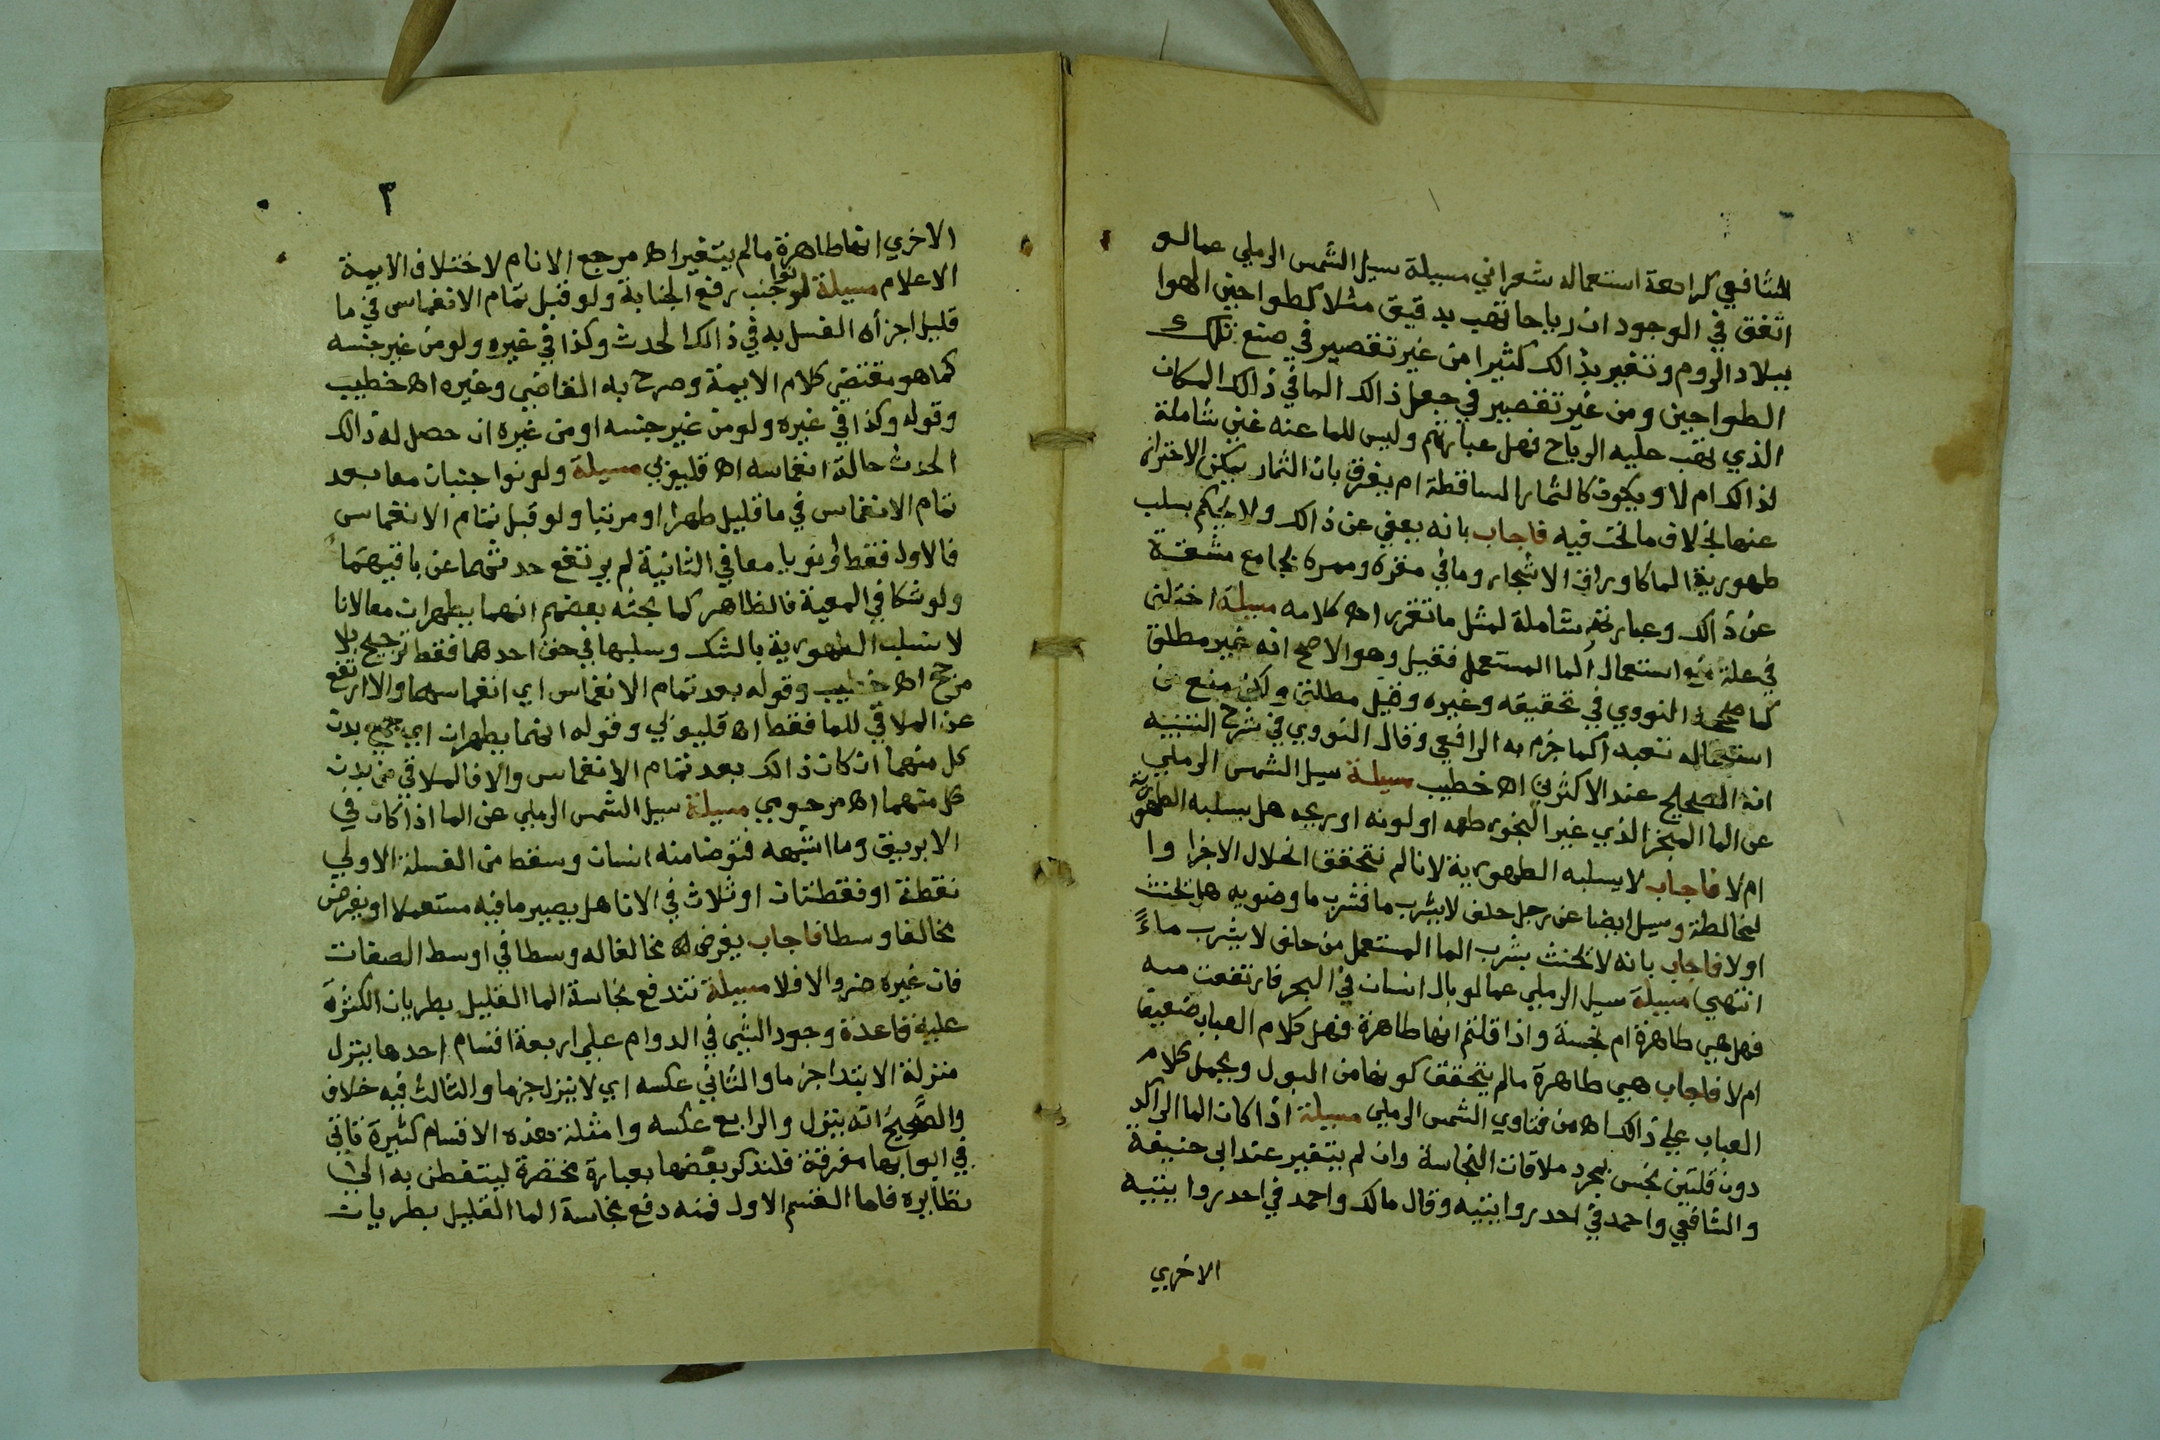 الشافعي كراهة استعماله شعراني مسيلة سيل الشمس الرملي عمالو
اتفق في الوجود ان رياحا تهب بدقيق مثلا كطواحين الهوا
ببلاد الروم وتغير بذالك كثيرا من غير تقصير في صنع تلك
الطواحين ومن غير تقصير في جعل ذالك الما في ذالك المكان
الذي تهب عليه الرياح فهل عبارتهم وليس للما عنه غني شاملة
لذالك ام لا ويكون كالثمار المساقطة ام يفرق بان الثمار يمكن الاحتراز
عنها بخلاف ما نحن فيه فاجاب بانه يعفي عن ذالك ولا يحكم بسلب
طهورية الما كاوراق الاشجار وما في مقره وممره بجامع مشقة
عن ذالك وعبارتهم شاملة لمثل ما تقرر اه كلامه مسيلة اختلف
في علة منع استعمال الما المستعمل فقيل وهو الاصح انه غير مطلق
كما صححه النووي في تحقيقه وغيره وقيل مطلق ولكن منع من
استعماله تعبدا كما جزم به الرافعي وقال النووي في شرح التنبيه
انه الصحيح عند الاكثرين اه خطيب مسيلة سيل الشمس الرملي
عن الما المبخر الذي غير البخور طعمه او لونه او ريحه هل يسلبه الطهورية
ام لا فاجاب لا يسلبه الطهورية لانا لم نتحقق انحلال الاجزا وا
لمخالطة وسيل ايضا عن رجل حلف لا يشرب ما فشرب ما وضويه هل يحنث
اولا فاجاب بانه لا يحنث بشرب الما المستعمل من حلف لا يشرب ماءً
انتهي مسيلة سيل الرملي عمالو بال انسان في البحر فارتفعت منه
فهل هي طاهرة ام نجسة واذا قلتم انها طاهرة فهل كلام العباب ضعيفا
ام لا فاجاب هي طاهرة مالم يتحقق كونها من البول ويحمل كلام
العباب علي ذالك اه من فتاوي الشمس الرملي مسيلة اذا كان الما الراكد
دون قلتين نجس بمجرد ملاقات النجاسة وان لم يتغير عند ابي حنيفة
والشافعي واحمد في احد روايتيه وقال مالك واحمد في احد روايتيه
الاخري
٣
الاخري انها طاهرة مالم يتغير اه مرجع الانام لاختلاف الايمة
الاعلام مسيلة لو نوا جنب رفع الجنابة ولو قبل تمام الانغماس في ما
قليل اجزأه الغسل به في ذالك الحدث وكذا في غيره ولو من غير جنسه
كما هو مقتضي كلام الايمة وصرح به القاضي وغيره اه خطيب
وقوله وكذا في غيره ولو من غير جنسه او من غيره ان حصل له ذالك
الحدث حالة انغماسه اه قليوبي مسيلة ولو نوا جنبان معا بعد
تمام الانغماس في ما قليل طهرا او مرتبا ولو قبل تمام الانغماس
فالاول فقط او نويا معا في الثانية لم يرتفع حدثهما عن باقيهما
ولو شكا في المعية فالظاهر كما بحثه بعضهم انهما يطهران معا لانا
لا نسلب الطهورية بالشك وسلبها في حق احدهما فقط ترجيح بلا
مرجح اه خطيب وقوله بعد تمام الانغماس اي انغماسهما والا ارتفع
عن الملاقي للما فقط اه قليوبي وقوله انهما يطهران اي جميع بدن
كل منهما ان كان ذالك بعد تمام الانغماس والا فالملاقي من بدن
كل منهما اه مرحومي مسيلة سيل الشمس الرملي عن الما اذا كان في
الابريق وما اشبهه فتوضا منه انسان وسقط من الغسلة الاولي
نقطة او نقطتان او ثلاث في الانا هل يصير ما فيه مستعملا او يفرض
مخالفا وسطا فاجاب يفرض مخالفا له وسطا في اوسط الصفات
فان غيره ضر والا فلا مسيلة تندفع نجاسة الما القليل بطريان الكثرة
عليه قاعدة وجود الشي في الدوام علي اربعة اقسام احدها ينزل
منزلة الابتدا جزما والثاني عكسه اي لا ينزل جزما والثالث فيه خلاف
والصحيح انه ينزل والرابع عكسه وامثلة هذه الاقسام كثيرة تاتي
في ابوابها مفرقة فلنذكر بعضها بعبارة مختصرة ليتفطن به الي
نظايره فاما القسم الاول فمنه دفع نجاسة الما القليل بطريان